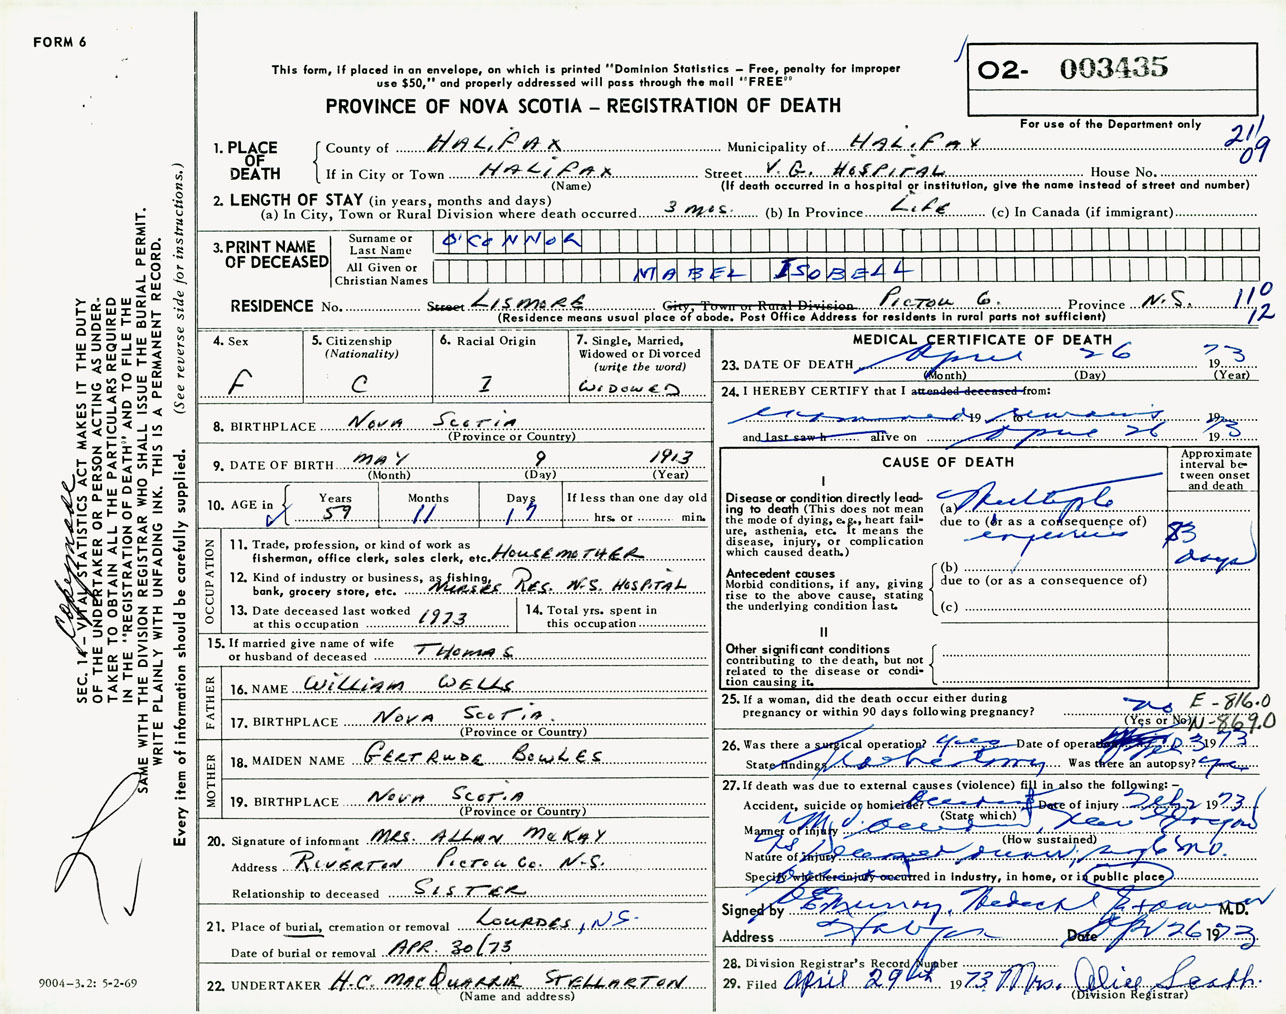 FORM 6
This form, if placed in an envelope, on which is printed "Dominion Statistics – Free, penalty for improper
use $50," and properly addressed will pass through the mail "FREE"
PROVINCE OF NOVA SCOTIA – REGISTRATION OF DEATH
O2- 003435
For use of the Department only
21/09
1. PLACE OF DEATH
County of HALIFAX Municipality of HALIFAX
If in City or Town HALIFAX Street V.G. HOSPITAL House No.
(Name) (If death occurred in a hospital or institution, give the name instead of street and number)
2. LENGTH OF STAY (in years, months and days)
(a) In City, Town or Rural Division where death occurred 3 mos. (b) In Province LIFE (c) In Canada (if immigrant)
3. PRINT NAME OF DECEASED
Surname or Last Name O'CONNOR
All Given or Christian Names MABEL ISOBELL
RESIDENCE No. Street LISMORE City, Town or Rural Division PICTOU Co. Province N.S.
110
12
(Residence means usual place of abode. Post Office Address for residents in rural parts not sufficient)
4. Sex
F
5. Citizenship
(Nationality)
C
6. Racial Origin
I
7. Single, Married,
Widowed or Divorced
(write the word)
WIDOWED
8. BIRTHPLACE NOVA SCOTIA
(Province or Country)
9. DATE OF BIRTH MAY 9 1913
(Month) (Day) (Year)
10. AGE in
Years 59
Months 11
Days 17
If less than one day old
hrs. or min.
OCCUPATION
11. Trade, profession, or kind of work as
fisherman, office clerk, sales clerk, etc. HOUSEMOTHER
12. Kind of industry or business, as fishing,
bank, grocery store, etc. NURSES RES. N.S. HOSPITAL
13. Date deceased last worked
at this occupation 1973
14. Total yrs. spent in
this occupation
15. If married give name of wife
or husband of deceased THOMAS
FATHER
16. NAME WILLIAM WELLS
17. BIRTHPLACE NOVA SCOTIA
(Province or Country)
MOTHER
18. MAIDEN NAME GERTRUDE BOWLES
19. BIRTHPLACE NOVA SCOTIA
(Province or Country)
20. Signature of informant MRS. ALLAN McKAY
Address RIVERTON PICTOU CO. N.S.
Relationship to deceased SISTER
21. Place of burial, cremation or removal LOURDES, N.S.
Date of burial or removal APR. 30/73
22. UNDERTAKER H.C. MACQUARRIE STELLARTON
(Name and address)
MEDICAL CERTIFICATE OF DEATH
23. DATE OF DEATH April 26 1973
(Month) (Day) (Year)
24. I HEREBY CERTIFY that I attended deceased from:
examined 19 to remains 19
and last saw h alive on April 26 1973
CAUSE OF DEATH
Approximate interval between onset and death
I
Disease or condition directly leading
to death (This does not mean
the mode of dying, e.g., heart failure,
asthenia, etc. It means the
disease, injury, or complication
which caused death.)
(a) Multiple
due to (or as a consequence of)
injuries
83 days
Antecedent causes
Morbid conditions, if any, giving
rise to the above cause, stating
the underlying condition last.
(b)
due to (or as a consequence of)
(c)
II
Other significant conditions
contributing to the death, but not
related to the disease or condition
causing it.
25. If a woman, did the death occur either during
pregnancy or within 90 days following pregnancy? no
(Yes or No)
E - 816.0
N - 869.0
26. Was there a surgical operation? yes Date of operation 3 1973
State findings Was there an autopsy? yes
27. If death was due to external causes (violence) fill in also the following: –
Accident, suicide or homicide? Accident Date of injury Feb 2 1973
(State which)
Manner of injury
(How sustained)
Nature of injury
Specify whether injury occurred in industry, in home, or in public place
Signed by Murray, Medical Examiner M.D.
Address Date Apr 26 1973
28. Division Registrar's Record Number
29. Filed April 29th 1973 Mrs. Alice
(Division Registrar)
SEC. 14 – VITAL STATISTICS ACT MAKES IT THE DUTY
OF THE UNDERTAKER OR PERSON ACTING AS UNDERTAKER
TO OBTAIN ALL THE PARTICULARS REQUIRED
IN THE "REGISTRATION OF DEATH" AND TO FILE THE
SAME WITH THE DIVISION REGISTRAR WHO SHALL ISSUE THE BURIAL PERMIT.
WRITE PLAINLY WITH UNFADING INK. THIS IS A PERMANENT RECORD.
Every item of information should be carefully supplied. (See reverse side for instructions.)
9004-3.2: 5-2-69